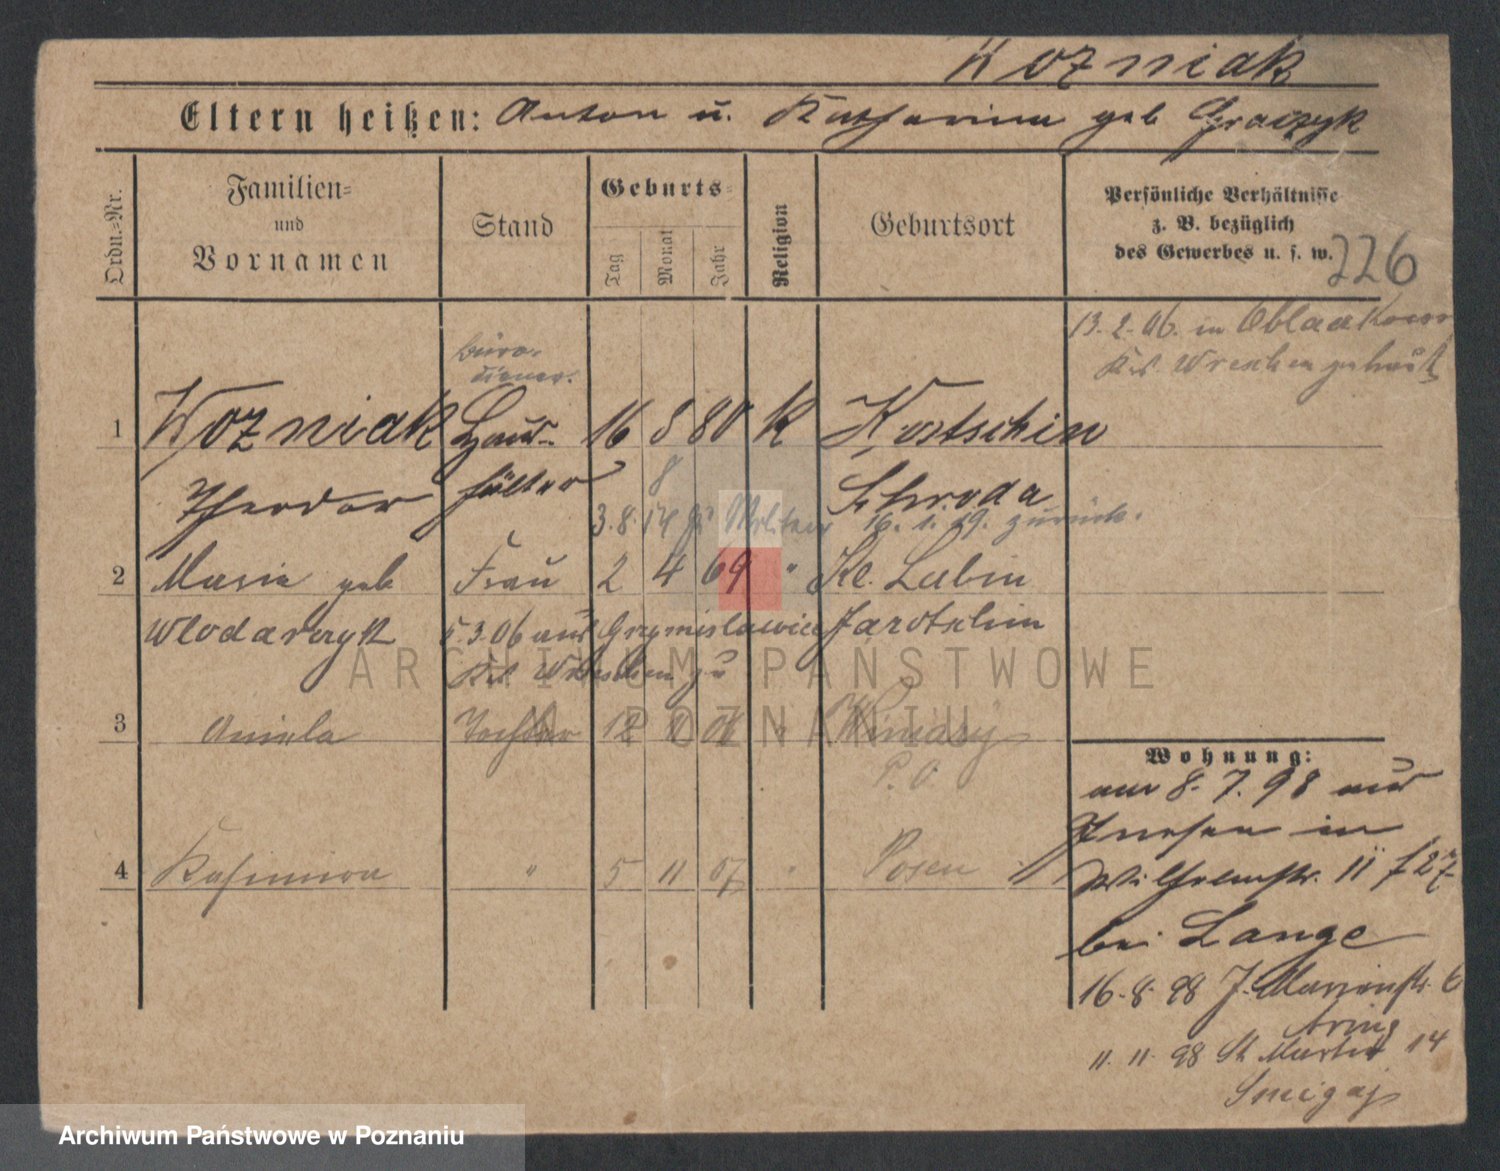 Wozniak
Eltern heißen: Anton u. Katharina geb Graczyk
Ordn.-Nr.
Familien- und Vornamen
Stand
Geburts-
Tag
Monat
Jahr
Religion
Geburtsort
Persönliche Verhältnisse
z. B. bezüglich
des Gewerbes u. s. w.
226
13.2.06. in
Krs. Wreschen geheirat.
Büro-
diener.
1 Wozniak Haus- 16 8 80 K Kostschin
Theodor hälter 8 Schroda
3.8.14 zu Militär 16.1.19. zurück.
2 Maria geb Frau 2 4 69 " Kl. Lubin
Wlodarczyk 5.3.06 aus Grzymislawice Jarotschin
Krs. Wreschen zu
3 Aniela Tochter 12 " Winiary
P. O.
4 Kasimira " 5 11 07 " Posen
Wohnung:
am 8.7.98 aus
Gnesen in
Wilhelmstr. 11 f 27
bei Lange
16.8.98 J. Marienstr. 6
Aring
11.11.98 St. Martin 14
Smigaj
ARCHIWUM PAŃSTWOWE
W POZNANIU
Archiwum Państwowe w Poznaniu